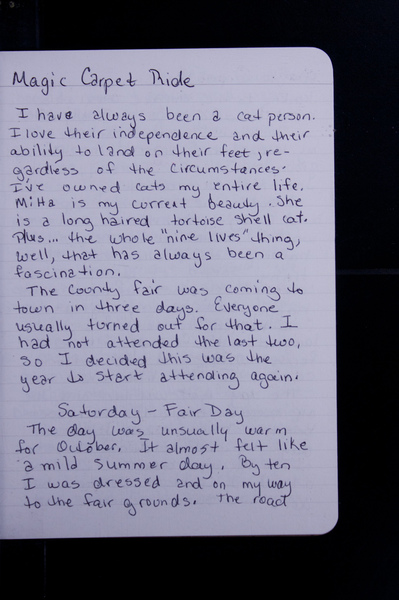 Magic Carpet Ride
I have always been a cat person.
I love their independence and their
ability to land on their feet, re-
gardless of the circumstances.
I've owned cats my entire life.
Mitta is my current beauty. She
is a long haired tortoise shell cat.
Plus... the whole "nine lives" thing,
well, that has always been a
fascination.
The county fair was coming to
town in three days. Everyone
usually turned out for that. I
had not attended the last two,
so I decided this was the
year to start attending again.
Saturday - Fair Day
The day was unusually warm
for October. It almost felt like
a mild summer day. By ten
I was dressed and on my way
to the fair grounds. The road